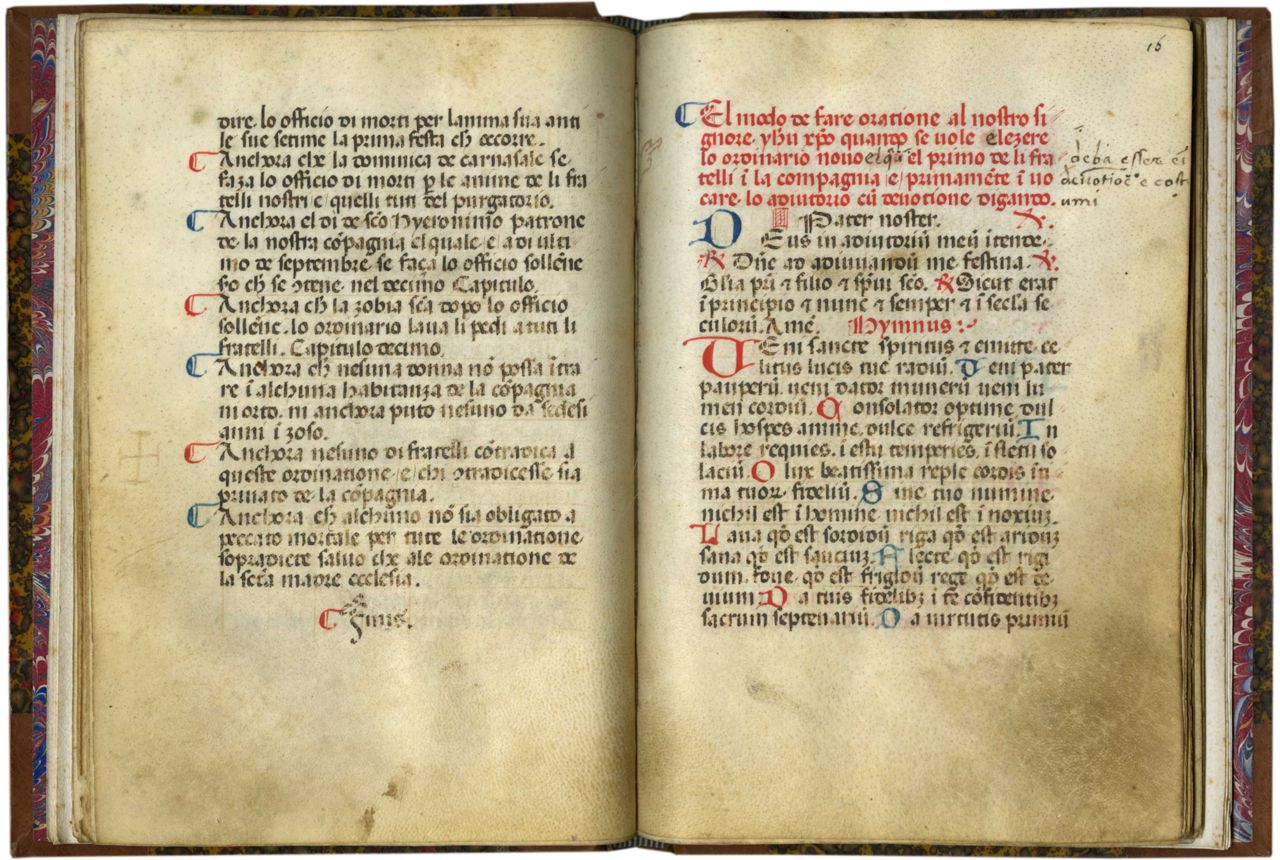 dire. lo officio di morti per lanima sua anti
le sue setime la prima festa ch̄ occorre.
Anchora che la dominica de carnasale se
faza lo officio di morti ꝑ le anime de li fra
telli nostri e quelli tuti del purgatorio.
Anchora el di de scō Hyeronimo patrone
de la nostra cōpagnia el quale e a di ulti
mo de septembre se faça lo officio sollēne
ch̄ se ꝯtene nel decimo Capitulo.
Anchora ch̄ la zobia scā dopo lo officio
sollēne. lo ordinario laua li pedi a tuti li
fratelli. Capitulo decimo.
Anchora ch̄ nesuna donna nō possa ītra
re ī alchuna habitanza de la cōpagnia
ni orto. ni anchora puto nesuno da sedesi
anni ī zoso.
Anchora nesuno di fratelli cōtradica a
queste ordinatione e chi ꝯtradicesse sia
priuato de la cōpagnia.
Anchora ch̄ alchuno nō sia obligato a
peccato mortale per tute le ordinatione
sopradicte saluo che ale ordinatione de
la scā madre ecclesia.
Finis.
16
El modo de fare oratione al nostro si
gnore yhu xp̄o quando se uole elezere
lo ordinario nouo el primo de li fra
telli ī la compagnia e primamēte ī uo
care lo adiutorio cū deuotione digando.
deba essere
deuotioē e cost
umi
Pater noster.
DEus in adiutoriū meū ītende.
℟ Dn̄e ad adiuuandū me festina.
Glia pr̄i ⁊ filio ⁊ spūi scō. ℟ Sicut erat
ī principio ⁊ nunc ⁊ semper ⁊ ī secla se
culorū. Amē. Hymnus:
VEni sancte spiritus ⁊ emitte ce
litus lucis tue radiū. Veni pater
pauperū ueni dator munerū ueni lu
men cordiū. Consolator optime dul
cis hospes anime dulce refrigeriū. In
labore requies. ī estu temperies, ī fletu so
laciū. O lux beatissima reple cordis īti
ma tuorꝝ fideliū. Sine tuo numine
nichil est ī homine nichil est ī noxiuꝫ.
Laua qđ est sordidū riga qđ est ariduꝫ
sana qđ est sauciuꝫ. Flecte qđ est rigi
dum. foue qđ est frigidū rege qđ est de
uium. Da tuis fidelibꝫ ī te cōfidentibꝫ
sacrum septenariū. Da uirtutis premiū